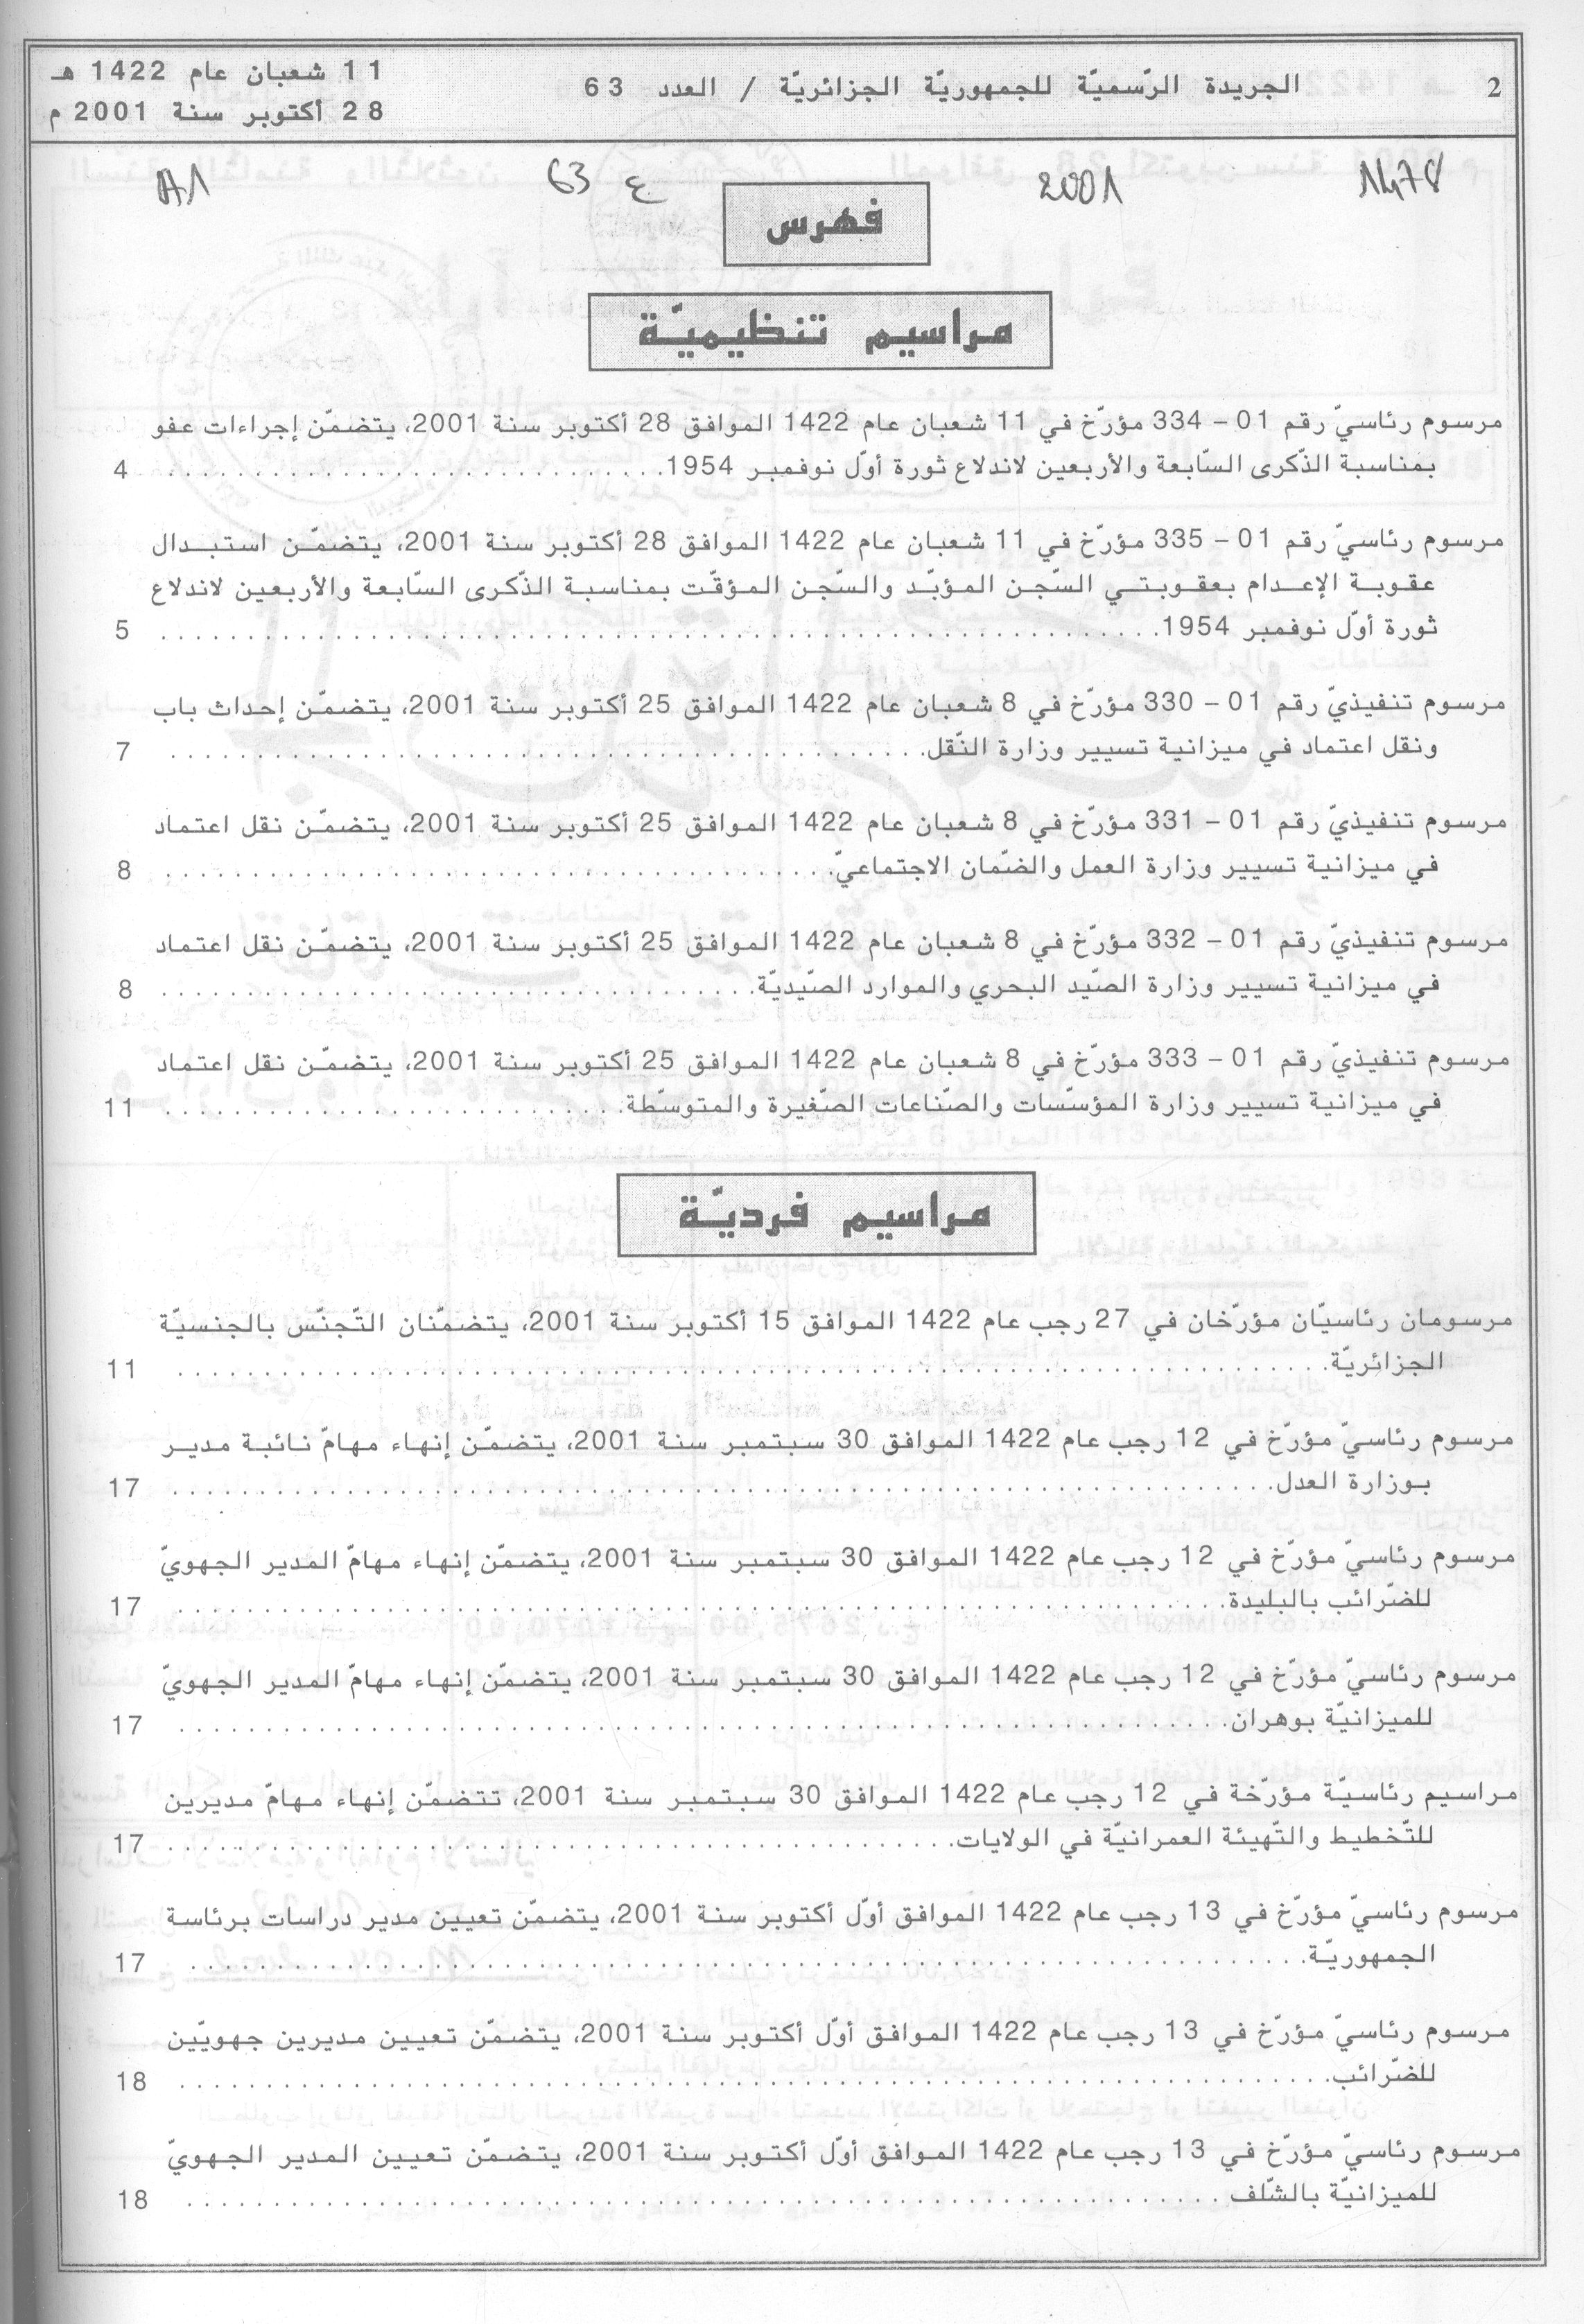 2
الجريدة الرّسميّة للجمهوريّة الجزائريّة / العدد 63
11 شعبان عام 1422 هـ
28 أكتوبر سنة 2001 م
1478 2001 63 ع A1
فهرس
مراسيم تنظيميّة
مرسوم رئاسيّ رقم 01 - 334 مؤرّخ في 11 شعبان عام 1422 الموافق 28 أكتوبر سنة 2001، يتضمّن إجراءات عفو
بمناسبة الذّكرى السّابعة والأربعين لاندلاع ثورة أوّل نوفمبر 1954. 4
مرسوم رئاسيّ رقم 01 - 335 مؤرّخ في 11 شعبان عام 1422 الموافق 28 أكتوبر سنة 2001، يتضمّن استبدال
عقوبة الإعدام بعقوبتي السّجن المؤبّد والسّجن المؤقّت بمناسبة الذّكرى السّابعة والأربعين لاندلاع
ثورة أوّل نوفمبر 1954. 5
مرسوم تنفيذيّ رقم 01 - 330 مؤرّخ في 8 شعبان عام 1422 الموافق 25 أكتوبر سنة 2001، يتضمّن إحداث باب
ونقل اعتماد في ميزانية تسيير وزارة النّقل. 7
مرسوم تنفيذيّ رقم 01 - 331 مؤرّخ في 8 شعبان عام 1422 الموافق 25 أكتوبر سنة 2001، يتضمّن نقل اعتماد
في ميزانية تسيير وزارة العمل والضّمان الاجتماعيّ. 8
مرسوم تنفيذيّ رقم 01 - 332 مؤرّخ في 8 شعبان عام 1422 الموافق 25 أكتوبر سنة 2001، يتضمّن نقل اعتماد
في ميزانية تسيير وزارة الصّيد البحري والموارد الصّيديّة. 8
مرسوم تنفيذيّ رقم 01 - 333 مؤرّخ في 8 شعبان عام 1422 الموافق 25 أكتوبر سنة 2001، يتضمّن نقل اعتماد
في ميزانية تسيير وزارة المؤسّسات والصّناعات الصّغيرة والمتوسّطة. 11
مراسيم فرديّة
مرسومان رئاسيّان مؤرّخان في 27 رجب عام 1422 الموافق 15 أكتوبر سنة 2001، يتضمّنان التّجنّس بالجنسيّة
الجزائريّة. 11
مرسوم رئاسيّ مؤرّخ في 12 رجب عام 1422 الموافق 30 سبتمبر سنة 2001، يتضمّن إنهاء مهامّ نائبة مدير
بوزارة العدل. 17
مرسوم رئاسيّ مؤرّخ في 12 رجب عام 1422 الموافق 30 سبتمبر سنة 2001، يتضمّن إنهاء مهامّ المدير الجهويّ
للضّرائب بالبليدة. 17
مرسوم رئاسيّ مؤرّخ في 12 رجب عام 1422 الموافق 30 سبتمبر سنة 2001، يتضمّن إنهاء مهامّ المدير الجهويّ
للميزانيّة بوهران. 17
مراسيم رئاسيّة مؤرّخة في 12 رجب عام 1422 الموافق 30 سبتمبر سنة 2001، تتضمّن إنهاء مهامّ مديرين
للتّخطيط والتّهيئة العمرانيّة في الولايات. 17
مرسوم رئاسيّ مؤرّخ في 13 رجب عام 1422 الموافق أوّل أكتوبر سنة 2001، يتضمّن تعيين مدير دراسات برئاسة
الجمهوريّة. 17
مرسوم رئاسيّ مؤرّخ في 13 رجب عام 1422 الموافق أوّل أكتوبر سنة 2001، يتضمّن تعيين مديرين جهويّين
للضّرائب. 18
مرسوم رئاسيّ مؤرّخ في 13 رجب عام 1422 الموافق أوّل أكتوبر سنة 2001، يتضمّن تعيين المدير الجهويّ
للميزانيّة بالشّلف 18